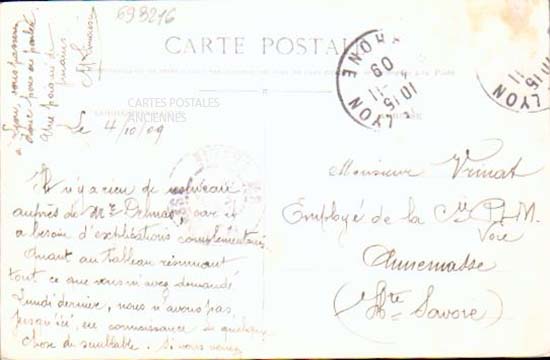 693216
CARTE POSTALE
CARTES POSTALES
ANCIENNES
LYON RHONE
10 15
11
09
10 15
11
LYON
Le 4/10/09
Il n'y a rien de nouveau
auprès de Mr Delmas, car il
a besoin d'explications complémentaires
Quant au tableau résumant
tout ce que vous m'avez demandé
lundi dernier, nous n'avons pas,
jusqu'ici, eu connaissance de quelque
chose de semblable. Si vous voyez
à Lyon, vous passerez
donc pour
Monsieur Vrinat
Employé de la Cie P.L.M.
Voie
Annemasse
(Hte Savoie)